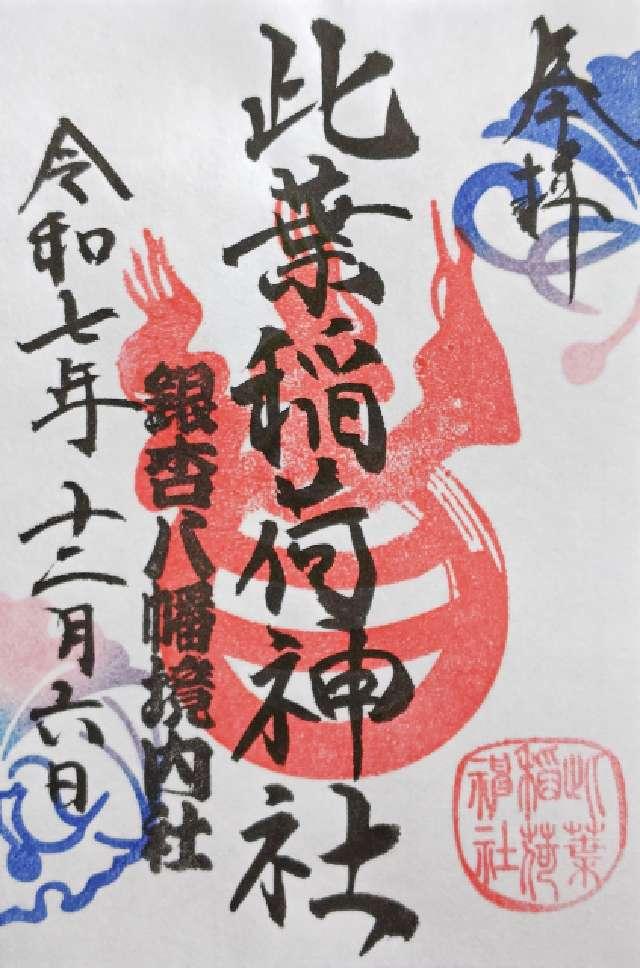 奉拝
此葉稲荷神社
銀杏八幡境内社
令和七年十二月六日
此葉
稲荷
神社